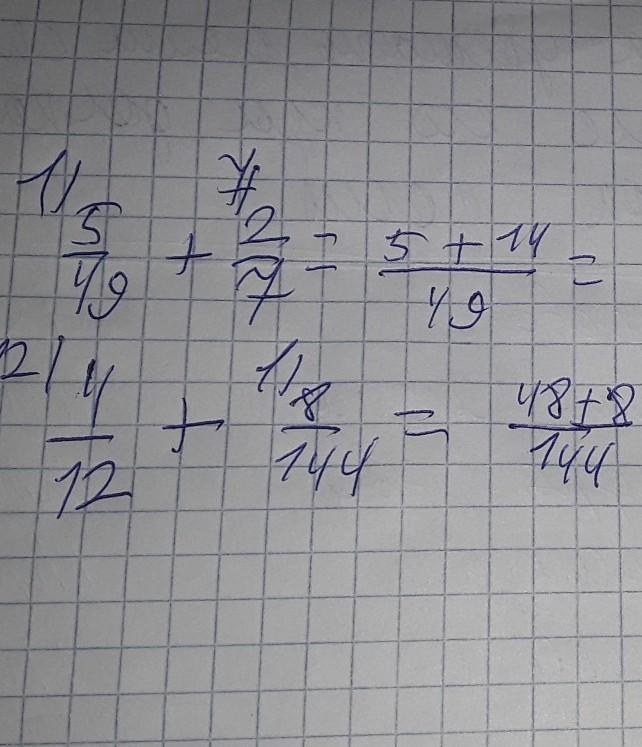 1) 5/49 + 7) 2/7 = 5 + 14/49 =
12) 4/12 + 1) 8/144 = 48+8/144